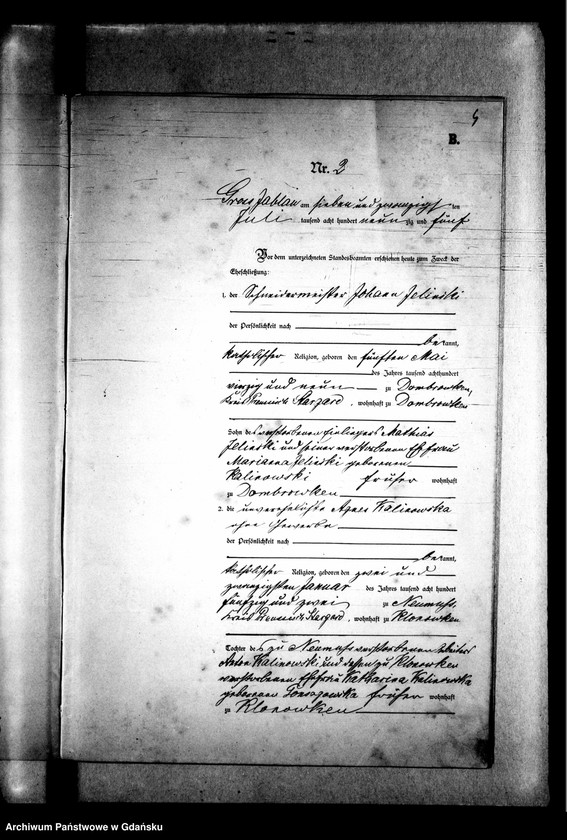 5
B.
Nr. 2
Gross Jablau am sieben und zwanzigsten
Juli tausend acht hundert neunzig und fünf
Vor dem unterzeichneten Standesbeamten erschienen heute zum Zweck der
Eheschließung:
1. der Schneidermeister Johann Jelinski
der Persönlichkeit nach
bekannt,
katholischer Religion, geboren den fünften Mai
des Jahres tausend achthundert
vierzig und neun zu Dombrowken,
Kreis Preussisch Stargard, wohnhaft zu Dombrowken
Sohn des verstorbenen Einliegers Mathias
Jelinski und seiner verstorbenen Ehefrau
Marianna Jelinski geborenen
Kalinowski früher wohnhaft
zu Dombrowken
2. die unverehelichte Agnes Kalinowska
ohne Gewerbe
der Persönlichkeit nach
bekannt,
katholischer Religion, geboren den zwei und
zwanzigsten Januar des Jahres tausend acht hundert
fünfzig und zwei zu
Kreis Preussisch Stargard, wohnhaft zu Klonowken
Tochter des zu verstorbenen Arbeiters
Kalinowski und dessen zu Klonowken
verstorbenen Ehefrau Katharina Kalinowska
geborenen früher wohnhaft
zu Klonowken
Archiwum Państwowe w Gdańsku